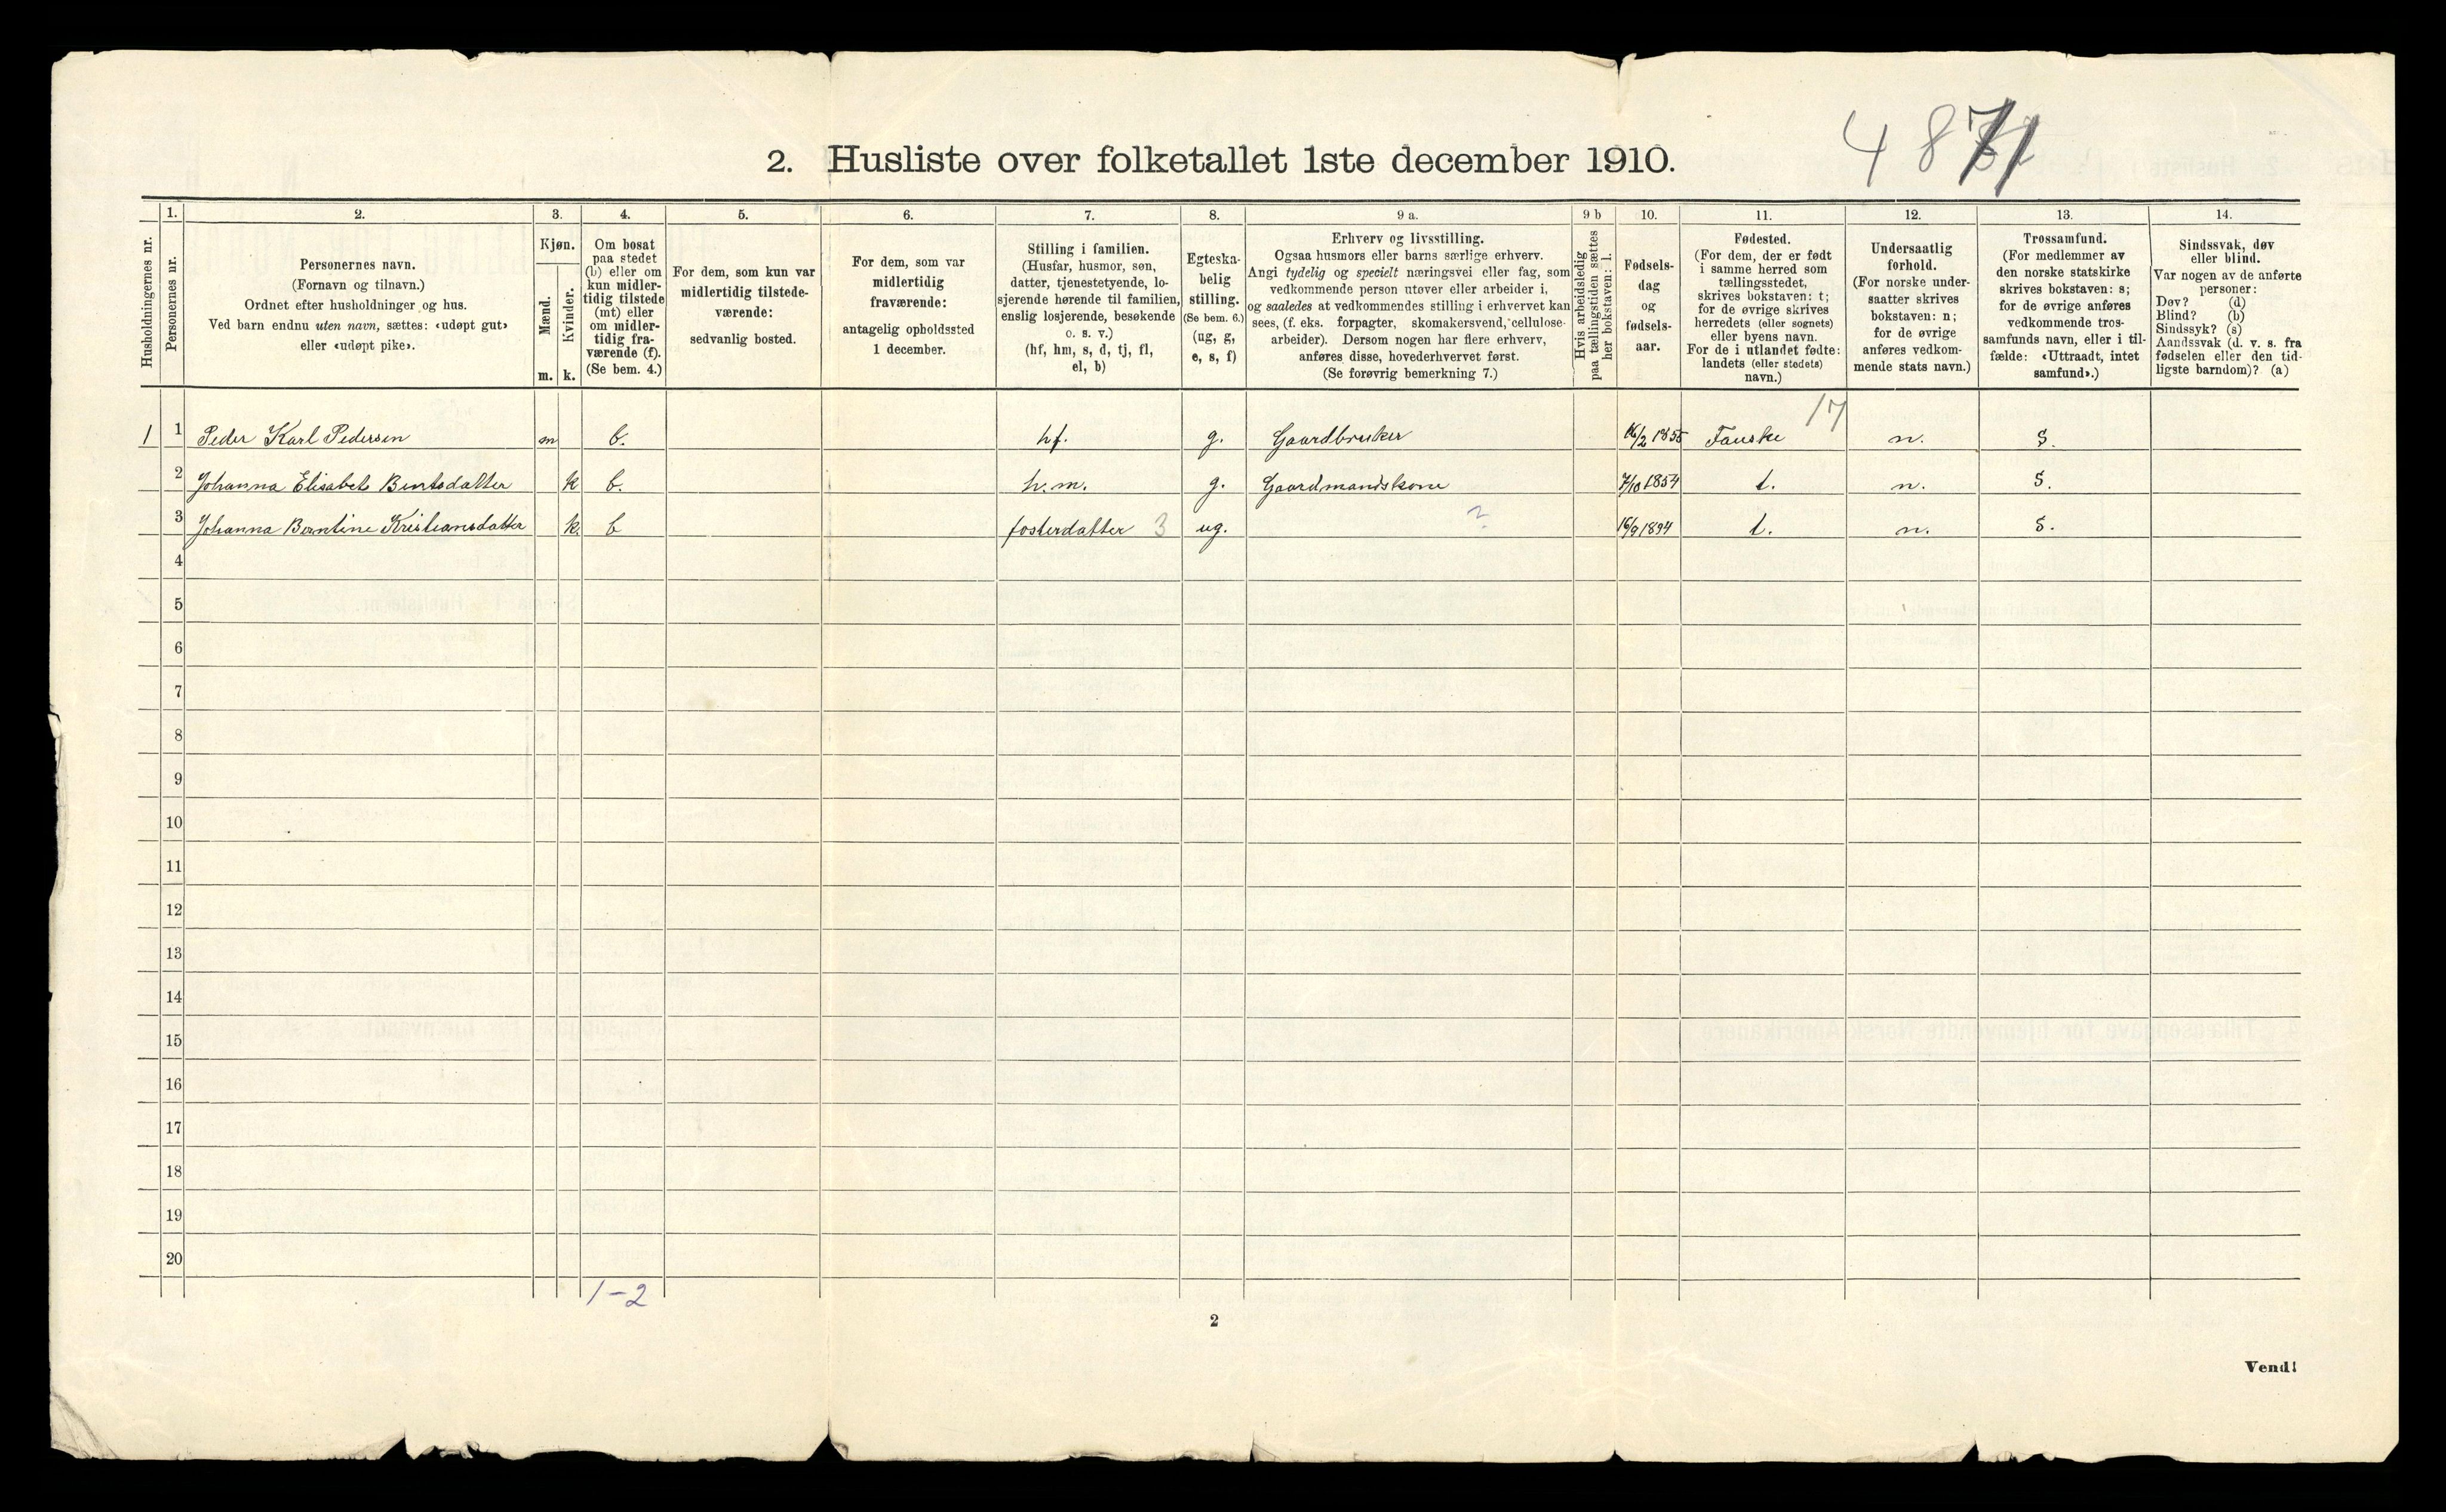 2. Husliste over folketallet 1ste december 1910.
Husholdningernes nr.
1.
Personernes nr.
2.
Personernes navn.
(Fornavn og tilnavn.)
Ordnet efter husholdninger og hus.
Ved barn endnu uten navn, sættes: «udøpt gut»
eller «udøpt pike».
3.
Kjøn.
Mænd.
Kvinder.
m. k.
4.
Om bosat
paa stedet
(b) eller om
kun midler-
tidig tilstede
(mt) eller
om midler-
tidig fra-
værende (f).
(Se bem. 4.)
5.
For dem, som kun var
midlertidig tilstede-
værende:
sedvanlig bosted.
6.
For dem, som var
midlertidig
fraværende:
antagelig opholdssted
1 december.
7.
Stilling i familien.
(Husfar, husmor, søn,
datter, tjenestetyende, lo-
sjerende hørende til familien,
enslig losjerende, besøkende
o. s. v.)
(hf, hm, s, d, tj, fl,
el, b)
8.
Egteska-
belig
stilling.
(Se bem. 6.)
(ug, g,
e, s, f)
9 a.
Erhverv og livsstilling.
Ogsaa husmors eller barns særlige erhverv.
Angi tydelig og specielt næringsvei eller fag, som
vedkommende person utøver eller arbeider i,
og saaledes at vedkommendes stilling i erhvervet kan
sees, (f. eks. forpagter, skomakersvend, cellulose-
arbeider). Dersom nogen har flere erhverv,
anføres disse, hovederhvervet først.
(Se forøvrig bemerkning 7.)
9 b
Hvis arbeidsledig
paa tællingstiden sættes
her bokstaven: l.
10.
Fødsels-
dag
og
fødsels-
aar.
11.
Fødested.
(For dem, der er født
i samme herred som
tællingsstedet,
skrives bokstaven: t;
for de øvrige skrives
herredets (eller sognets)
eller byens navn.
For de i utlandet fødte:
landets (eller stedets)
navn.)
12.
Undersaatlig
forhold.
(For norske under-
saatter skrives
bokstaven: n;
for de øvrige
anføres vedkom-
mende stats navn.)
13.
Trossamfund.
(For medlemmer av
den norske statskirke
skrives bokstaven: s;
for de øvrige anføres
vedkommende tros-
samfunds navn, eller i til-
fælde: «Uttraadt, intet
samfund».)
14.
Sindssvak, døv
eller blind.
Var nogen av de anførte
personer:
Døv? (d)
Blind? (b)
Sindssyk? (s)
Aandssvak (d. v. s. fra
fødselen eller den tid-
ligste barndom)? (a)
17
1 1 Peder Karl Pedersen m b. hf. g. Gaardbruker 16/2 1855 Fauske n. S.
2 Johanna Elisabet Berntsdatter k b. h.m. g. Gaardmandskone 7/10 1854 t. n. S.
3 Johanna Berntine Kristiansdatter k. b fosterdatter 3 ug. ? 16/9 1894 t. n. S.
4
5
6
7
8
9
10
11
12
13
14
15
16
17
18
19
20
1-2
2
Vend!